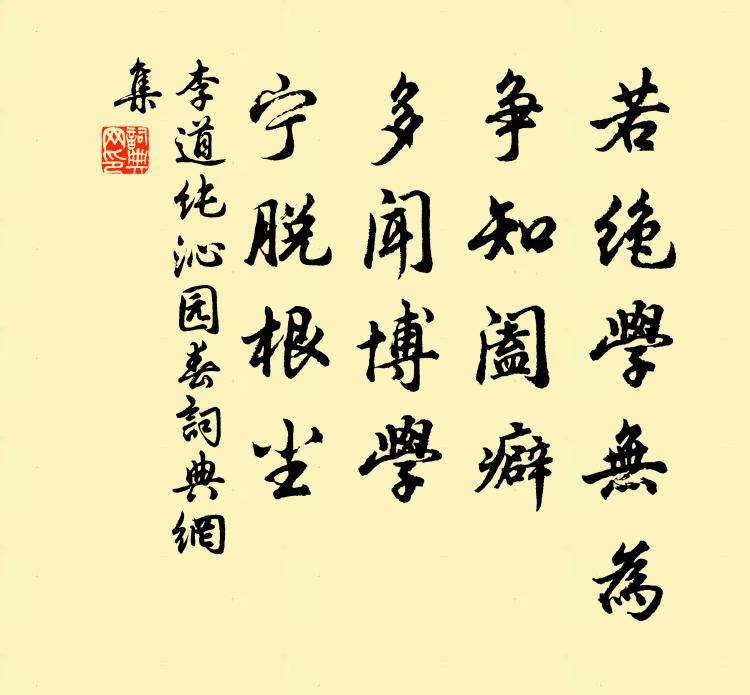 若绝學無為
争知阖癖
多闻博學
宁脱根尘
李道纯沁园春詞典網
集
詞典
网印